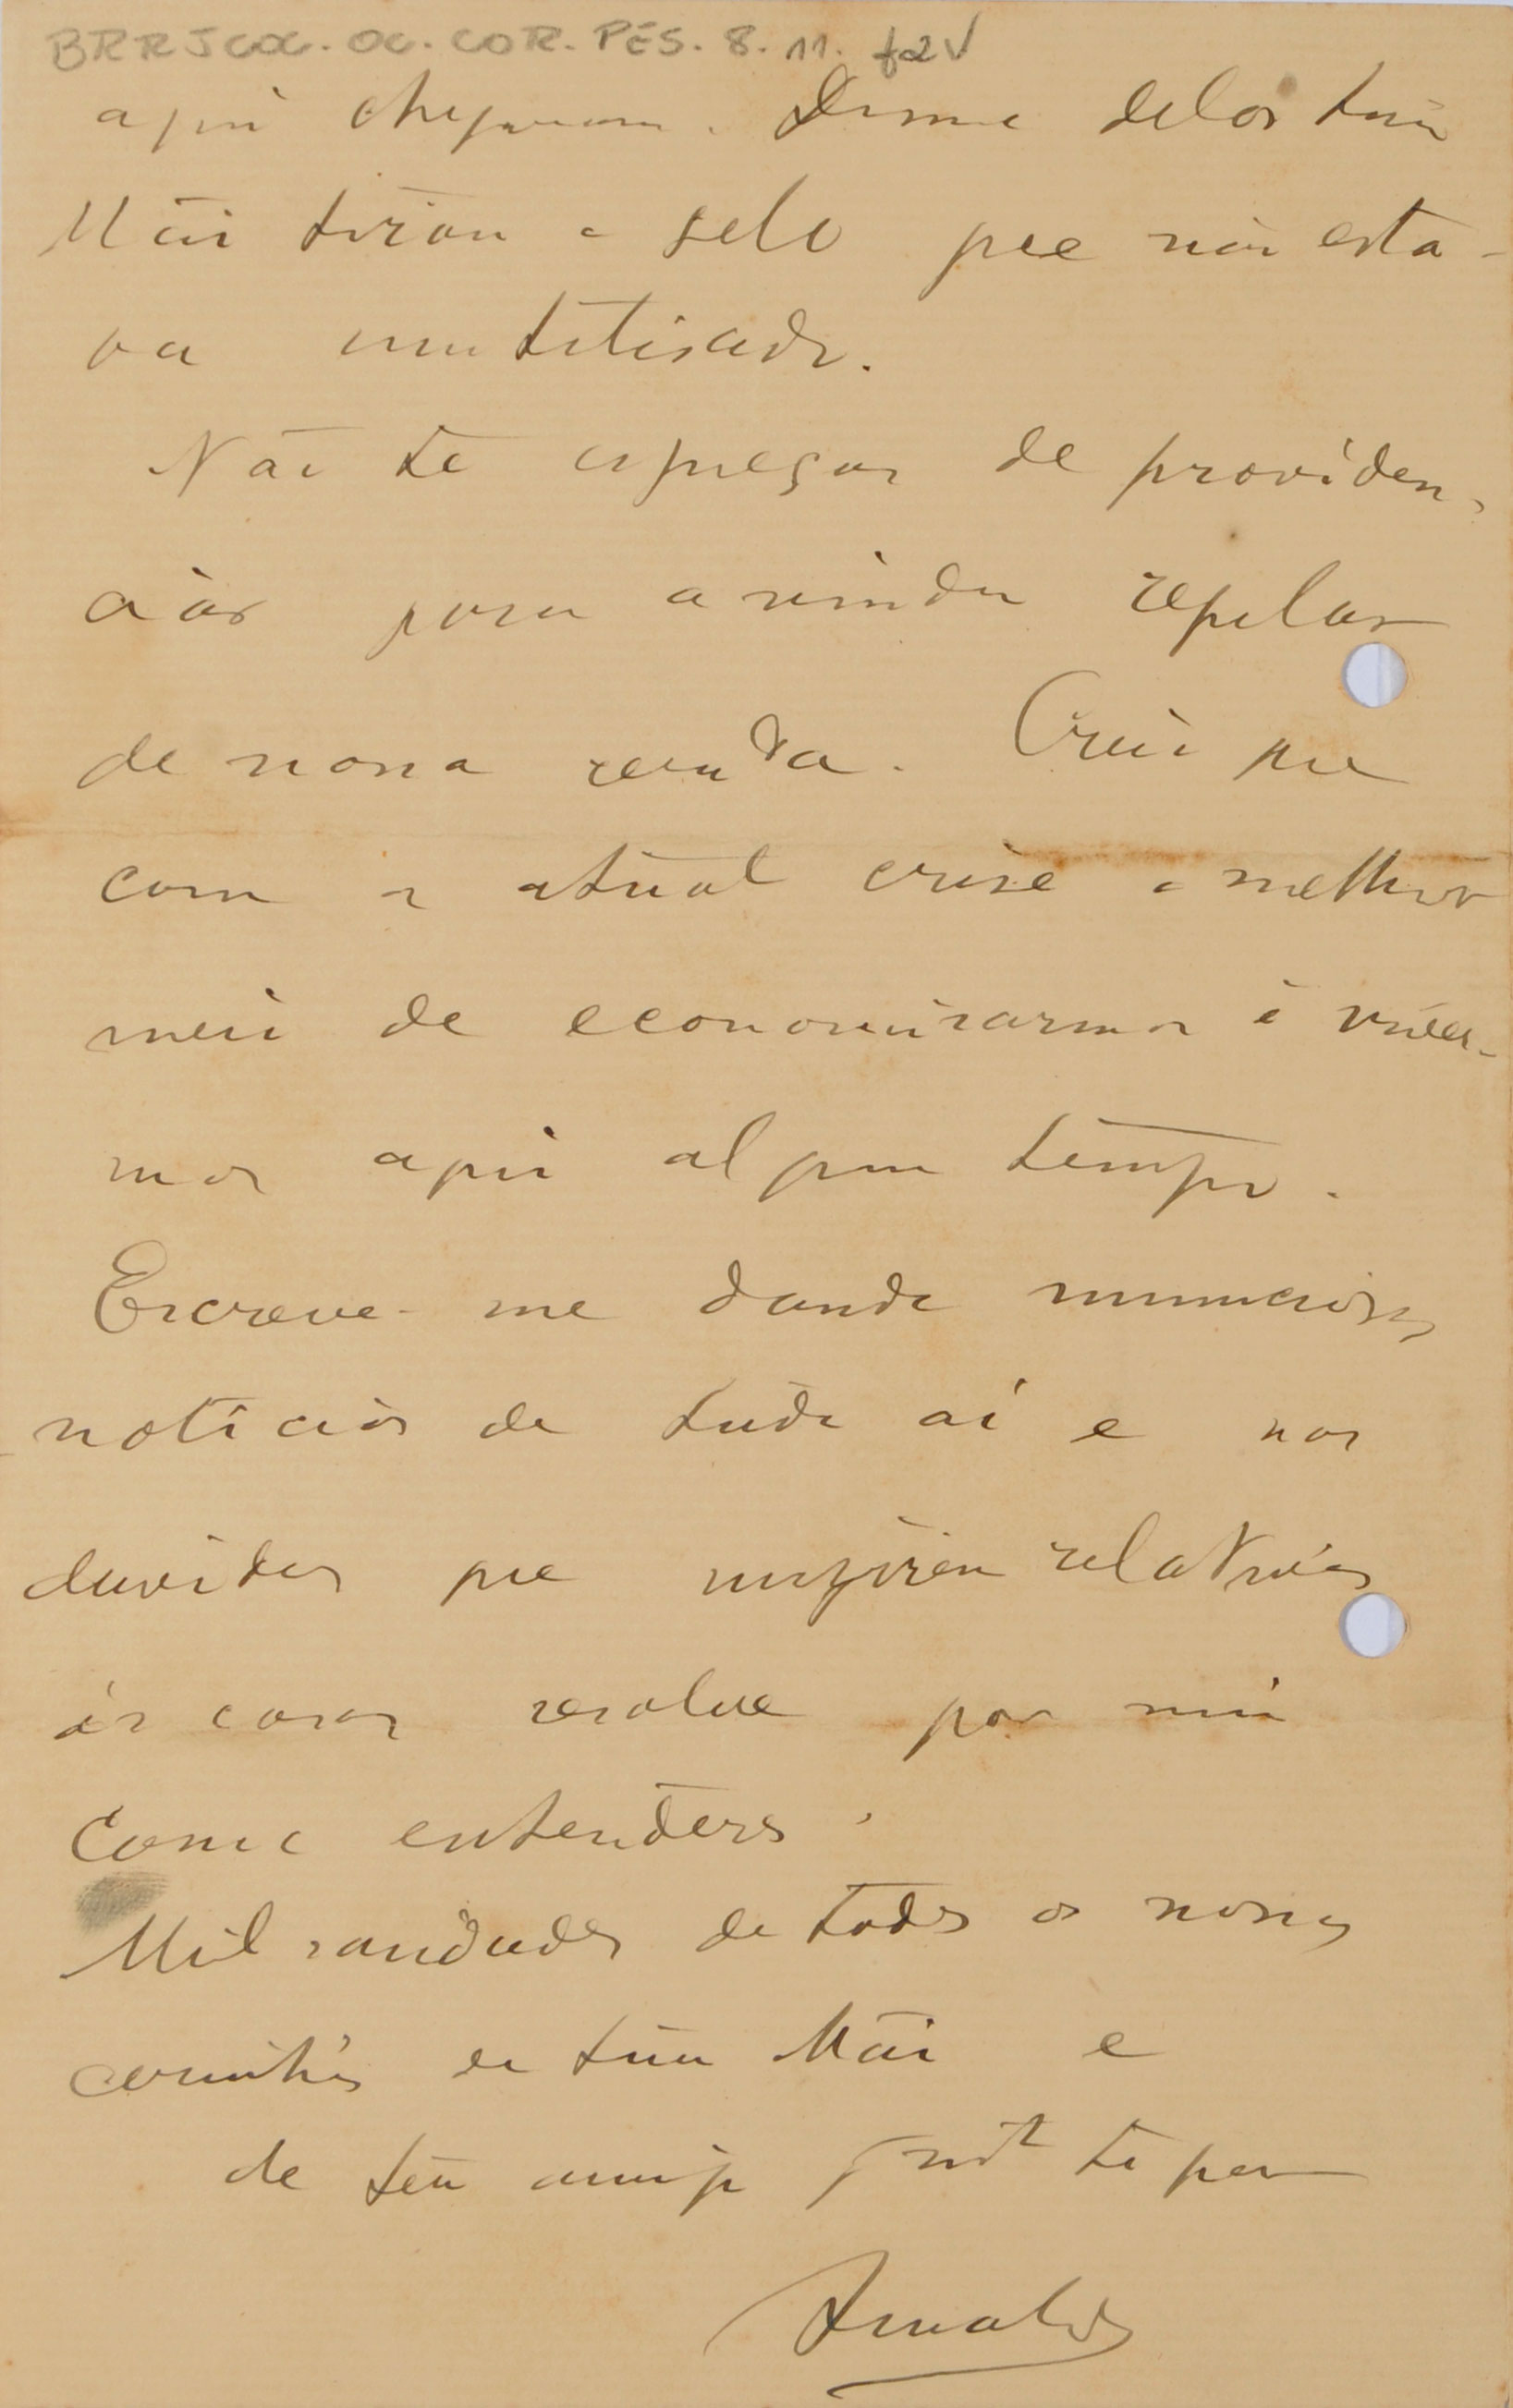 BRRJCOC. OC. COR. PES. 8. 11. f2v
aqui chegaram. D'uma delas tua
Mãi tirou o selo que não esta-
va inutilisado.
Não te esqueças de providen-
cias para a vinda regular
de nossa renda. Creio que
com a atual crise o melhor
meio de economisarmos é viver-
mos aqui algum tempo.
Escreve-me dando minuciosas
noticias de tudo aí e nas
duvidas que surgirem relativas
ás casas resolve por mim
como entenderes.
Mil saudades de todos os nossos
carinhos de tua Mãi e
de teu amigo que te quer
Arnaldo